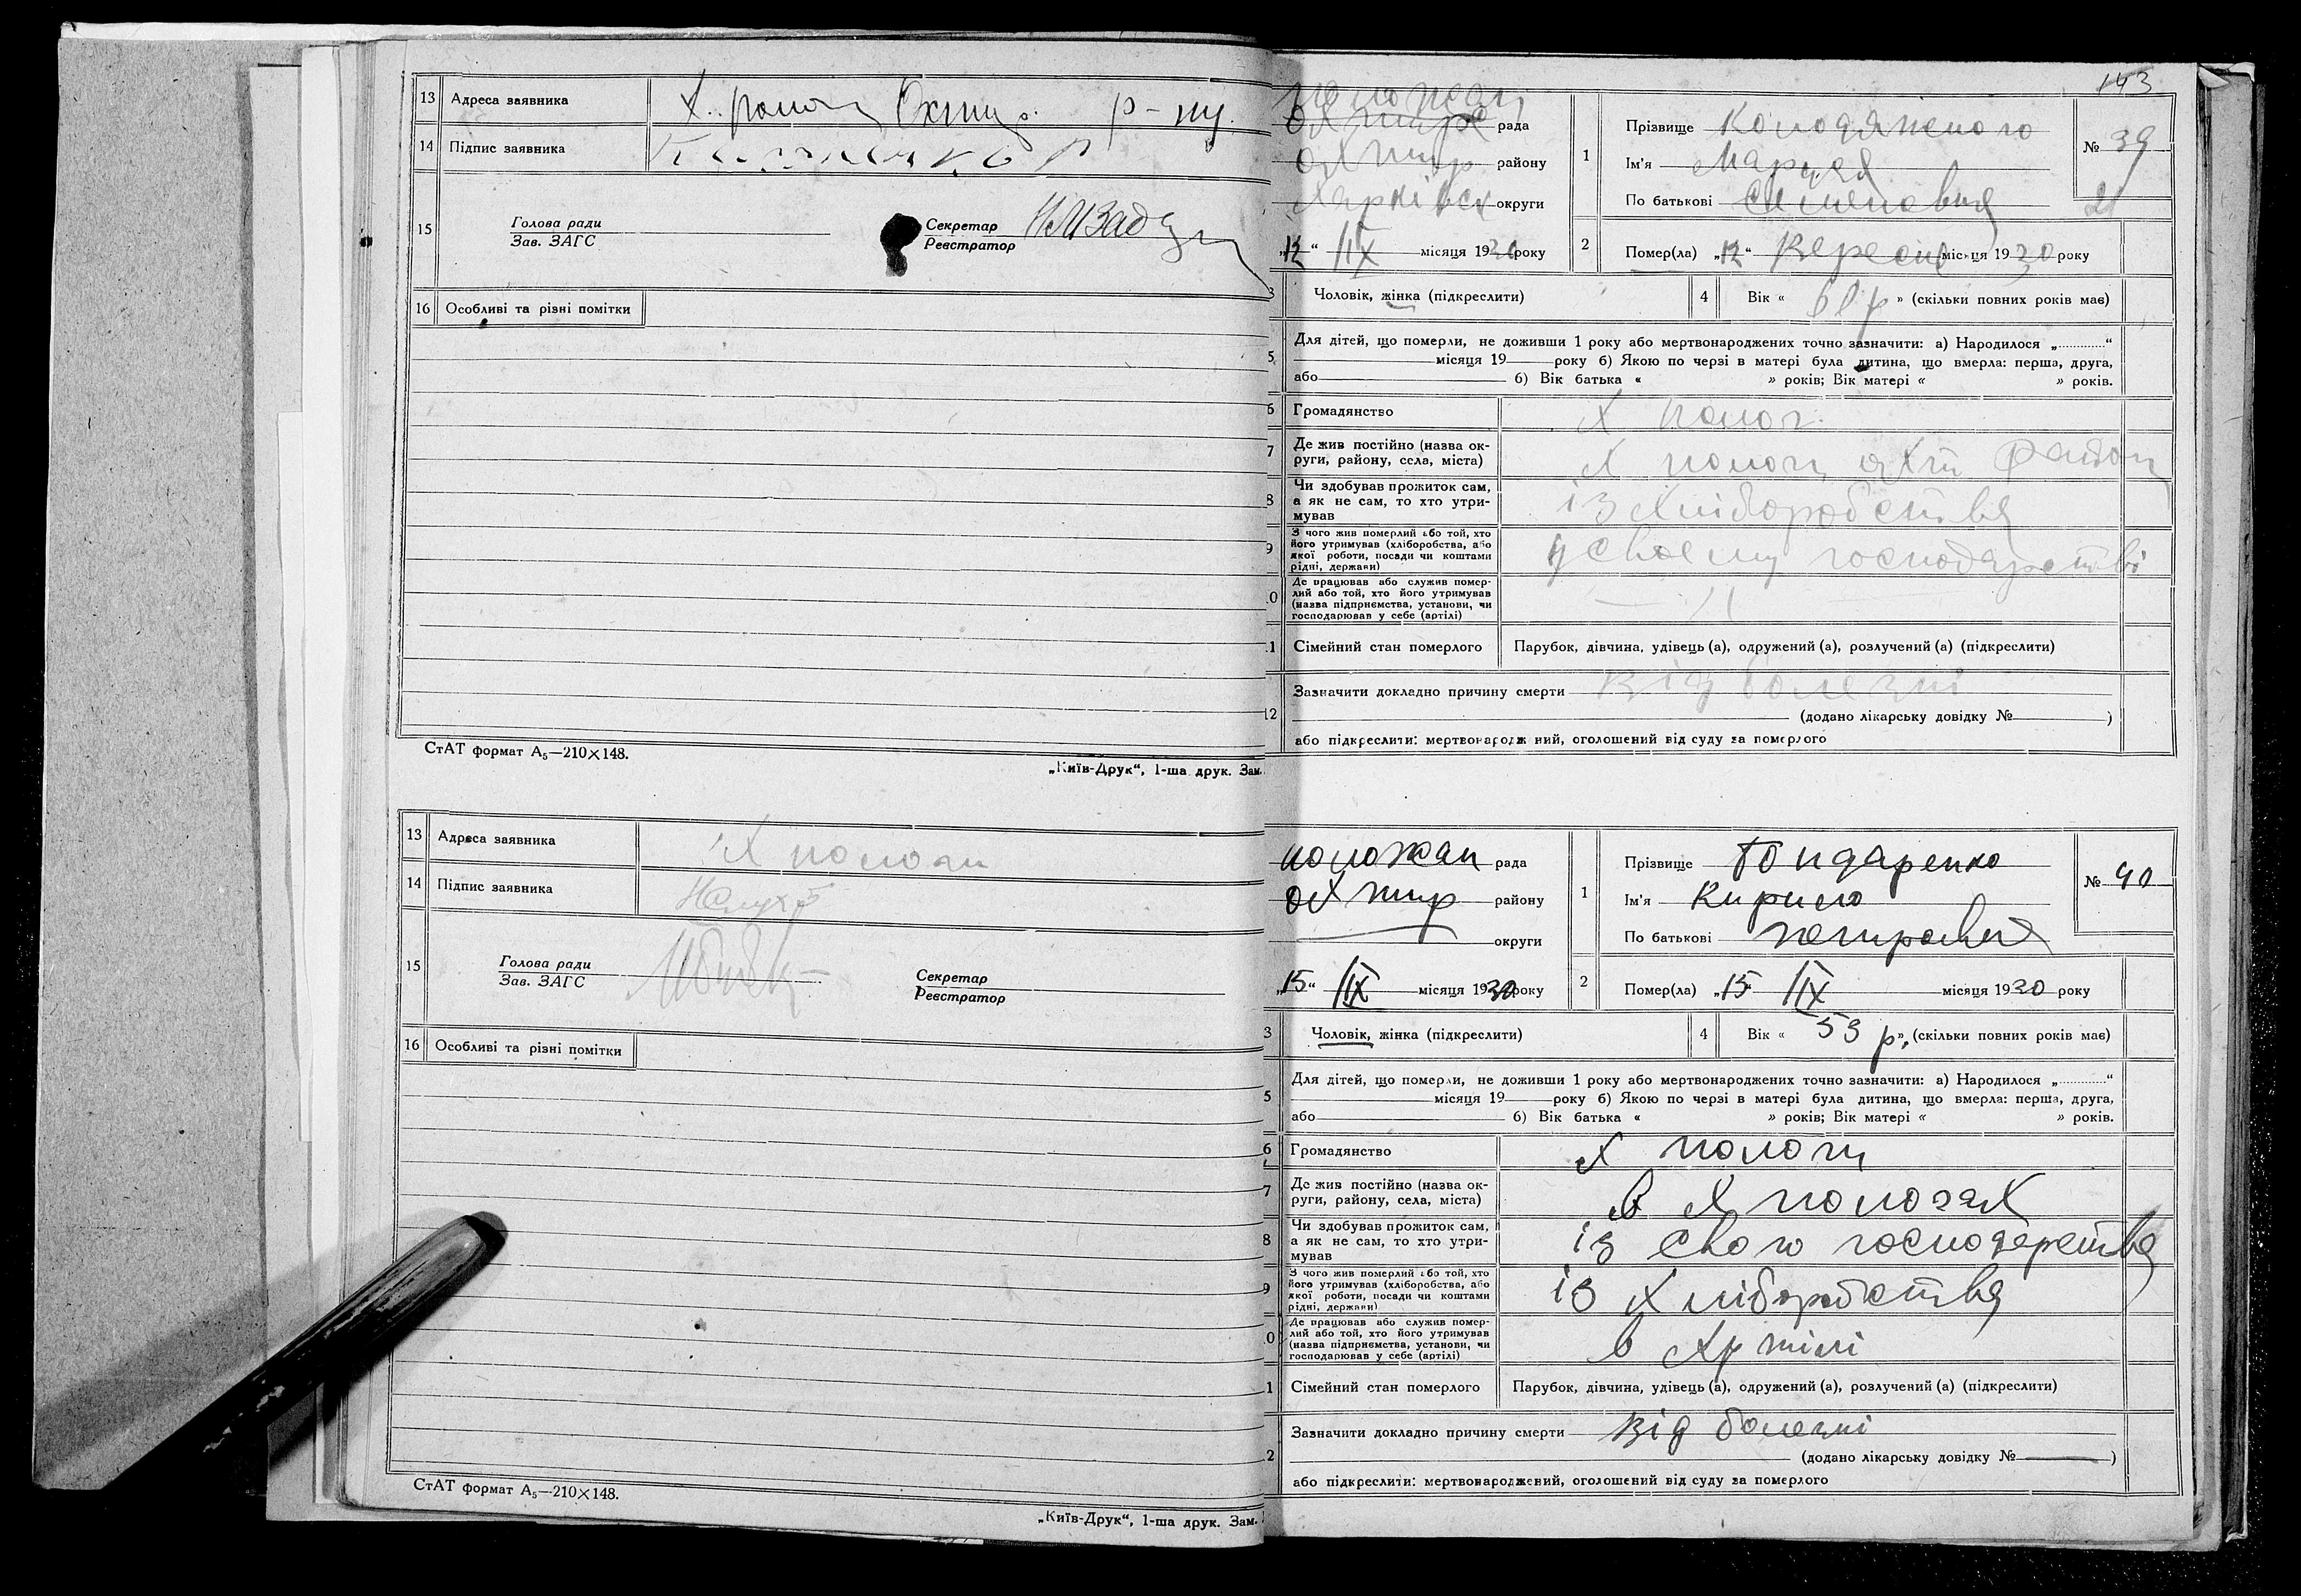 13 Адреса заявника Х. Полоз Охтир. р-ну
14 Підпис заявника
15 Голова ради
Зав. ЗАГС
Секретар
Реєстратор
16 Особливі та різні помітки
СтАТ формат А₅—210×148.
„Київ-Друк“, 1-ша друк. Зам.
13 Адреса заявника Х Полози
14 Підпис заявника
15 Голова ради
Зав. ЗАГС
Секретар
Реєстратор
16 Особливі та різні помітки
СтАТ формат А₅—210×148.
„Київ-Друк“, 1-ша друк. Зам.
143
рада
Охтир району
Харківськ округи
„12“ IX місяця 1930 року
1 Прізвище Колодяжного
Ім'я
По батькові Семеновна
№ 39
2 Помер(ла) „12“ Вересня місяця 1930 року
3 Чоловік, жінка (підкреслити)
4 Вік « р » (скільки повних років має)
5 Для дітей, що померли, не доживши 1 року або мертвонароджених точно зазначити: а) Народилося „............“
місяця 19 року б) Якою по черзі в матері була дитина, що вмерла: перша, друга,
або б) Вік батька « » років; Вік матері « » років.
6 Громадянство Х Полоз.
7 Де жив постійно (назва ок-
руги, району, села, міста) Х Полози Охт район
8 Чи здобував прожиток сам,
а як не сам, то хто утри-
мував
із хліборобства
9 З чого жив померлий або той, хто
його утримував (хліборобства, або
якої роботи, посади чи коштами
рідні, держави)
у своєму господарстві
10 Де працював або служив помер-
лий або той, хто його утримував
(назва підприємства, установи, чи
господарював у себе (артілі)
— 11
11 Сімейний стан померлого Парубок, дівчина, удівець (а), одружений (а), розлучений (а) (підкреслити)
12 Зазначити докладно причину смерти Від болезні
(додано лікарську довідку № )
або підкреслити: мертвонароджений, оголошений від суду за померлого
Положан рада
Охтир району
округи
„15“ IX місяця 1930 року
1 Прізвище Бондаренко
Ім'я Кирило
По батькові
№ 40
2 Помер(ла) „15“ IX місяця 1930 року
3 Чоловік, жінка (підкреслити)
4 Вік « 59 р », (скільки повних років має)
5 Для дітей, що померли, не доживши 1 року або мертвонароджених точно зазначити: а) Народилося „............“
місяця 19 року б) Якою по черзі в матері була дитина, що вмерла: перша, друга,
або б) Вік батька « » років; Вік матері « » років.
6 Громадянство Х Полози
7 Де жив постійно (назва ок-
руги, району, села, міста) в Х Полозах
8 Чи здобував прожиток сам,
а як не сам, то хто утри-
мував
із свого господарства
9 З чого жив померлий або той, хто
його утримував (хліборобства, або
якої роботи, посади чи коштами
рідні, держави)
із хліборобства
10 Де працював або служив помер-
лий або той, хто його утримував
(назва підприємства, установи, чи
господарював у себе (артілі)
в Артілі
11 Сімейний стан померлого Парубок, дівчина, удівець (а), одружений (а), розлучений (а) (підкреслити)
12 Зазначити докладно причину смерти Від болезні
(додано лікарську довідку № —)
або підкреслити: мертвонароджений, оголошений від суду за померлого